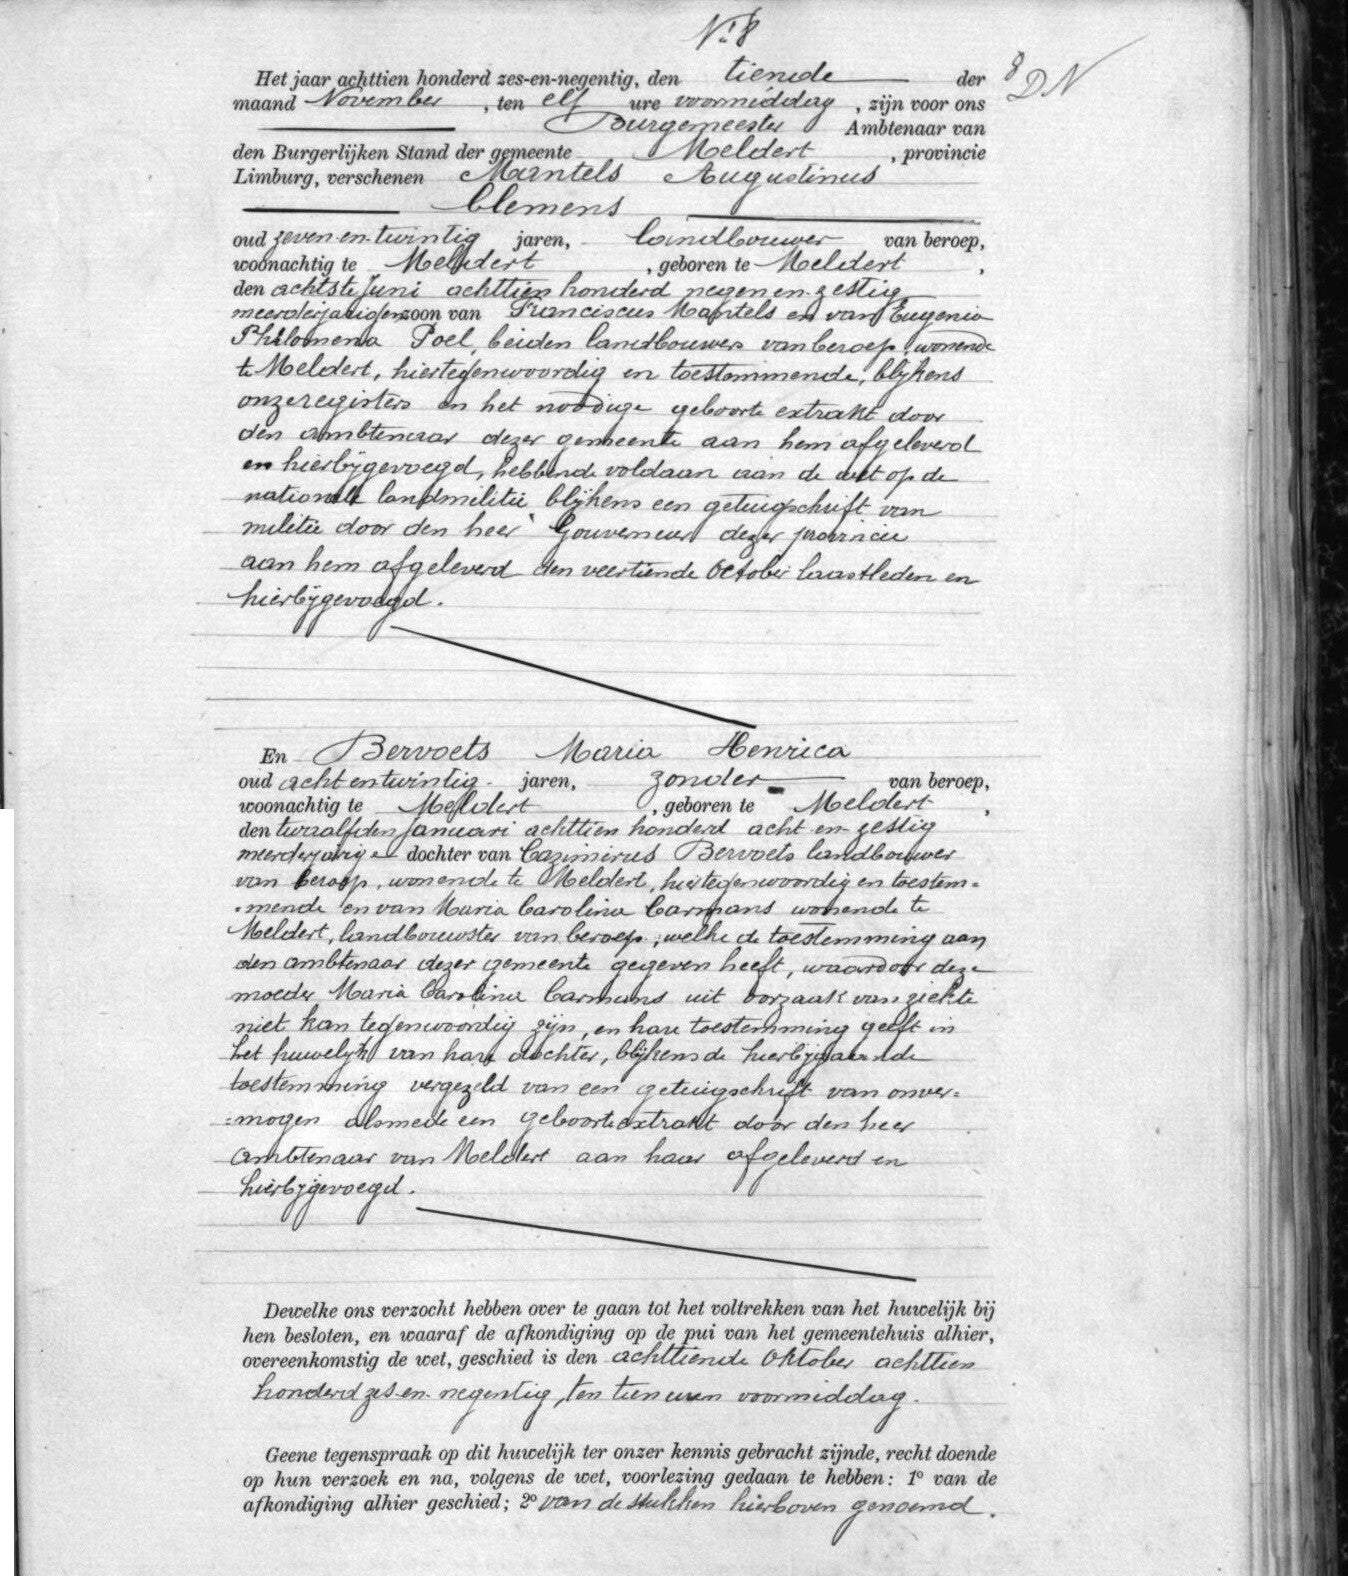 N.r 8
Het jaar achttien honderd zes-en-negentig, den tiende der
8 DN
maand November, ten elf ure voormiddag, zijn voor ons
Burgemeester Ambtenaar van
den Burgerlijken Stand der gemeente Meldert, provincie
Limburg, verschenen Mantels Augustinus
Clemens
oud zeven-en-twintig jaren, landbouwer van beroep,
woonachtig te Meldert, geboren te Meldert,
den achtste Juni achttien honderd negen en zestig
meerderjarigen zoon van Franciscus Mantels en van Eugenia
Philomena Poel, beiden landbouwers van beroep, wonende
te Meldert, hiertegenwoordig en toestemmende, blijkens
onze registers en het noodige geboorte extrakt door
den ambtenaar dezer gemeente aan hem afgeleverd
en hierbijgevoegd, hebbende voldaan aan de wet op de
nationale landmilitie blijkens een getuigschrift van
militie door den heer Gouverneur dezer provincie
aan hem afgeleverd den veertiende October laastleden en
hierbijgevoegd.
En Bervoets Maria Henrica
oud acht en twintig jaren, zonder van beroep,
woonachtig te Meldert, geboren te Meldert,
den twaalfden Januari achttien honderd acht-en-zestig
meerderjarige dochter van Cazimirus Bervoets landbouwer
van beroep, wonende te Meldert, hiertegenwoordig en toestem=
=mende en van Maria Carolina Carmans wonende te
Meldert, landbouwster van beroep, welke de toestemming aan
den ambtenaar dezer gemeente gegeven heeft, waardoor deze
moeder Maria Carolina Carmans uit oorzaak van ziekte
niet kan tegenwoordig zijn, en hare toestemming geeft in
het huwelijk van hare dochter, blijkens de hierbijgaande
toestemming vergezeld van een getuigschrift van onver=
=mogen alsmede een geboorte extrakt door den heer
ambtenaar van Meldert aan haar afgeleverd en
hierbijgevoegd.
Dewelke ons verzocht hebben over te gaan tot het voltrekken van het huwelijk bij
hen besloten, en waaraf de afkondiging op de pui van het gemeentehuis alhier,
overeenkomstig de wet, geschied is den achttiende Oktober achttien
honderd zes-en-negentig, ten tien uren voormiddag.
Geene tegenspraak op dit huwelijk ter onzer kennis gebracht zijnde, recht doende
op hun verzoek en na, volgens de wet, voorlezing gedaan te hebben: 1° van de
afkondiging alhier geschied; 2° van de stukken hierboven genoemd.